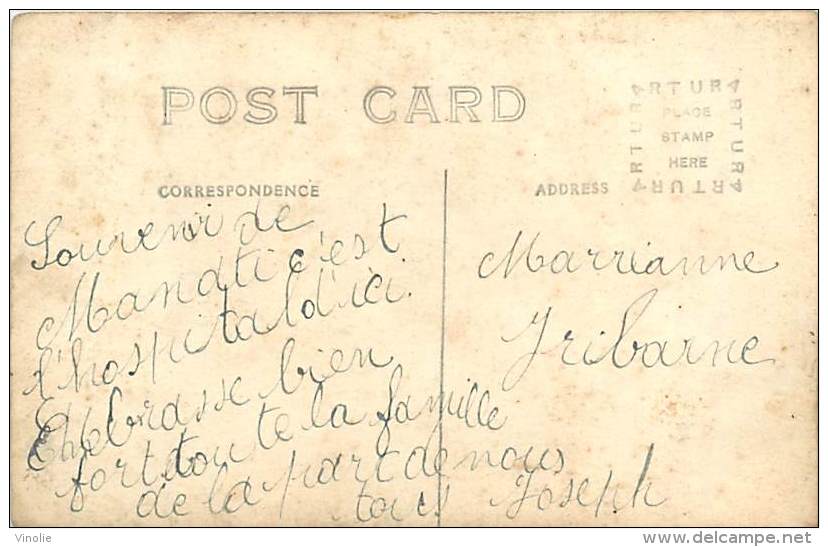 POST CARD
ARTURA
ARTURA
PLACE
STAMP
HERE
ARTURA
ARTURA
CORRESPONDENCE
ADDRESS
Souvenir de
c'est
l'hospital d'ici.
Embrasse bien
fort toute la famille
de la part de nous
tous Joseph
Marrianne
Iribarne
Vinolie
www.delcampe.net